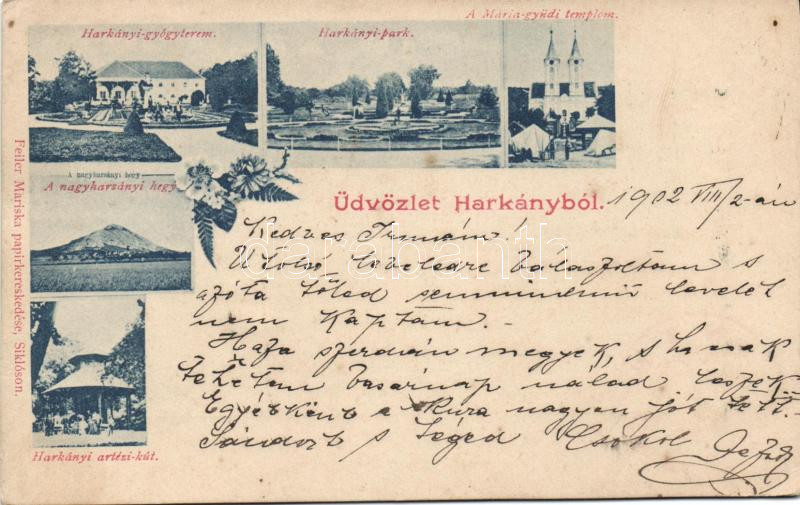 A Mária-gyüdi templom.
Harkányi-gyógyterem.
Harkányi-park.
A nagyharsányi hegy
A nagyharsányi hegy
Üdvözlet Harkányból.
1902 VIII/2-án
Kedves Irmám!
Utolsó leveledre válaszoltam s
azóta tőled semminemű levelet
nem kaptam.-
Haza szerdán megyek, s
tehetem vasárnap nálad leszek.
Egyébként a kúra nagyon jót tett.
Sándort s Téged Csókol Dezső
Harkányi artézi-kút.
Feiler Mariska papirkereskedése, Siklóson.
darabanth